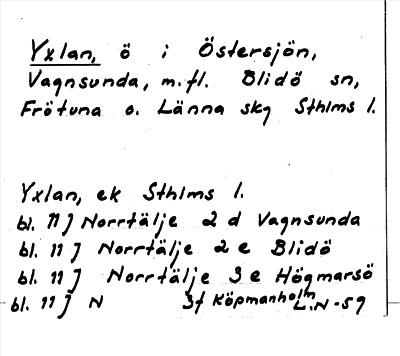 Yxlan, ö i Östersjön,
Vagnsunda, m.fl. Blidö sn,
Frötuna o. Länna skg Sthlms l.
Yxlan, ek Sthlms l.
bl. 11 J Norrtälje 2 d Vagnsunda
bl. 11 J Norrtälje 2 e Blidö
bl. 11 J Norrtälje 3 e Högmarsö
bl. 11 J N 3f Köpmanholm
L.N-59